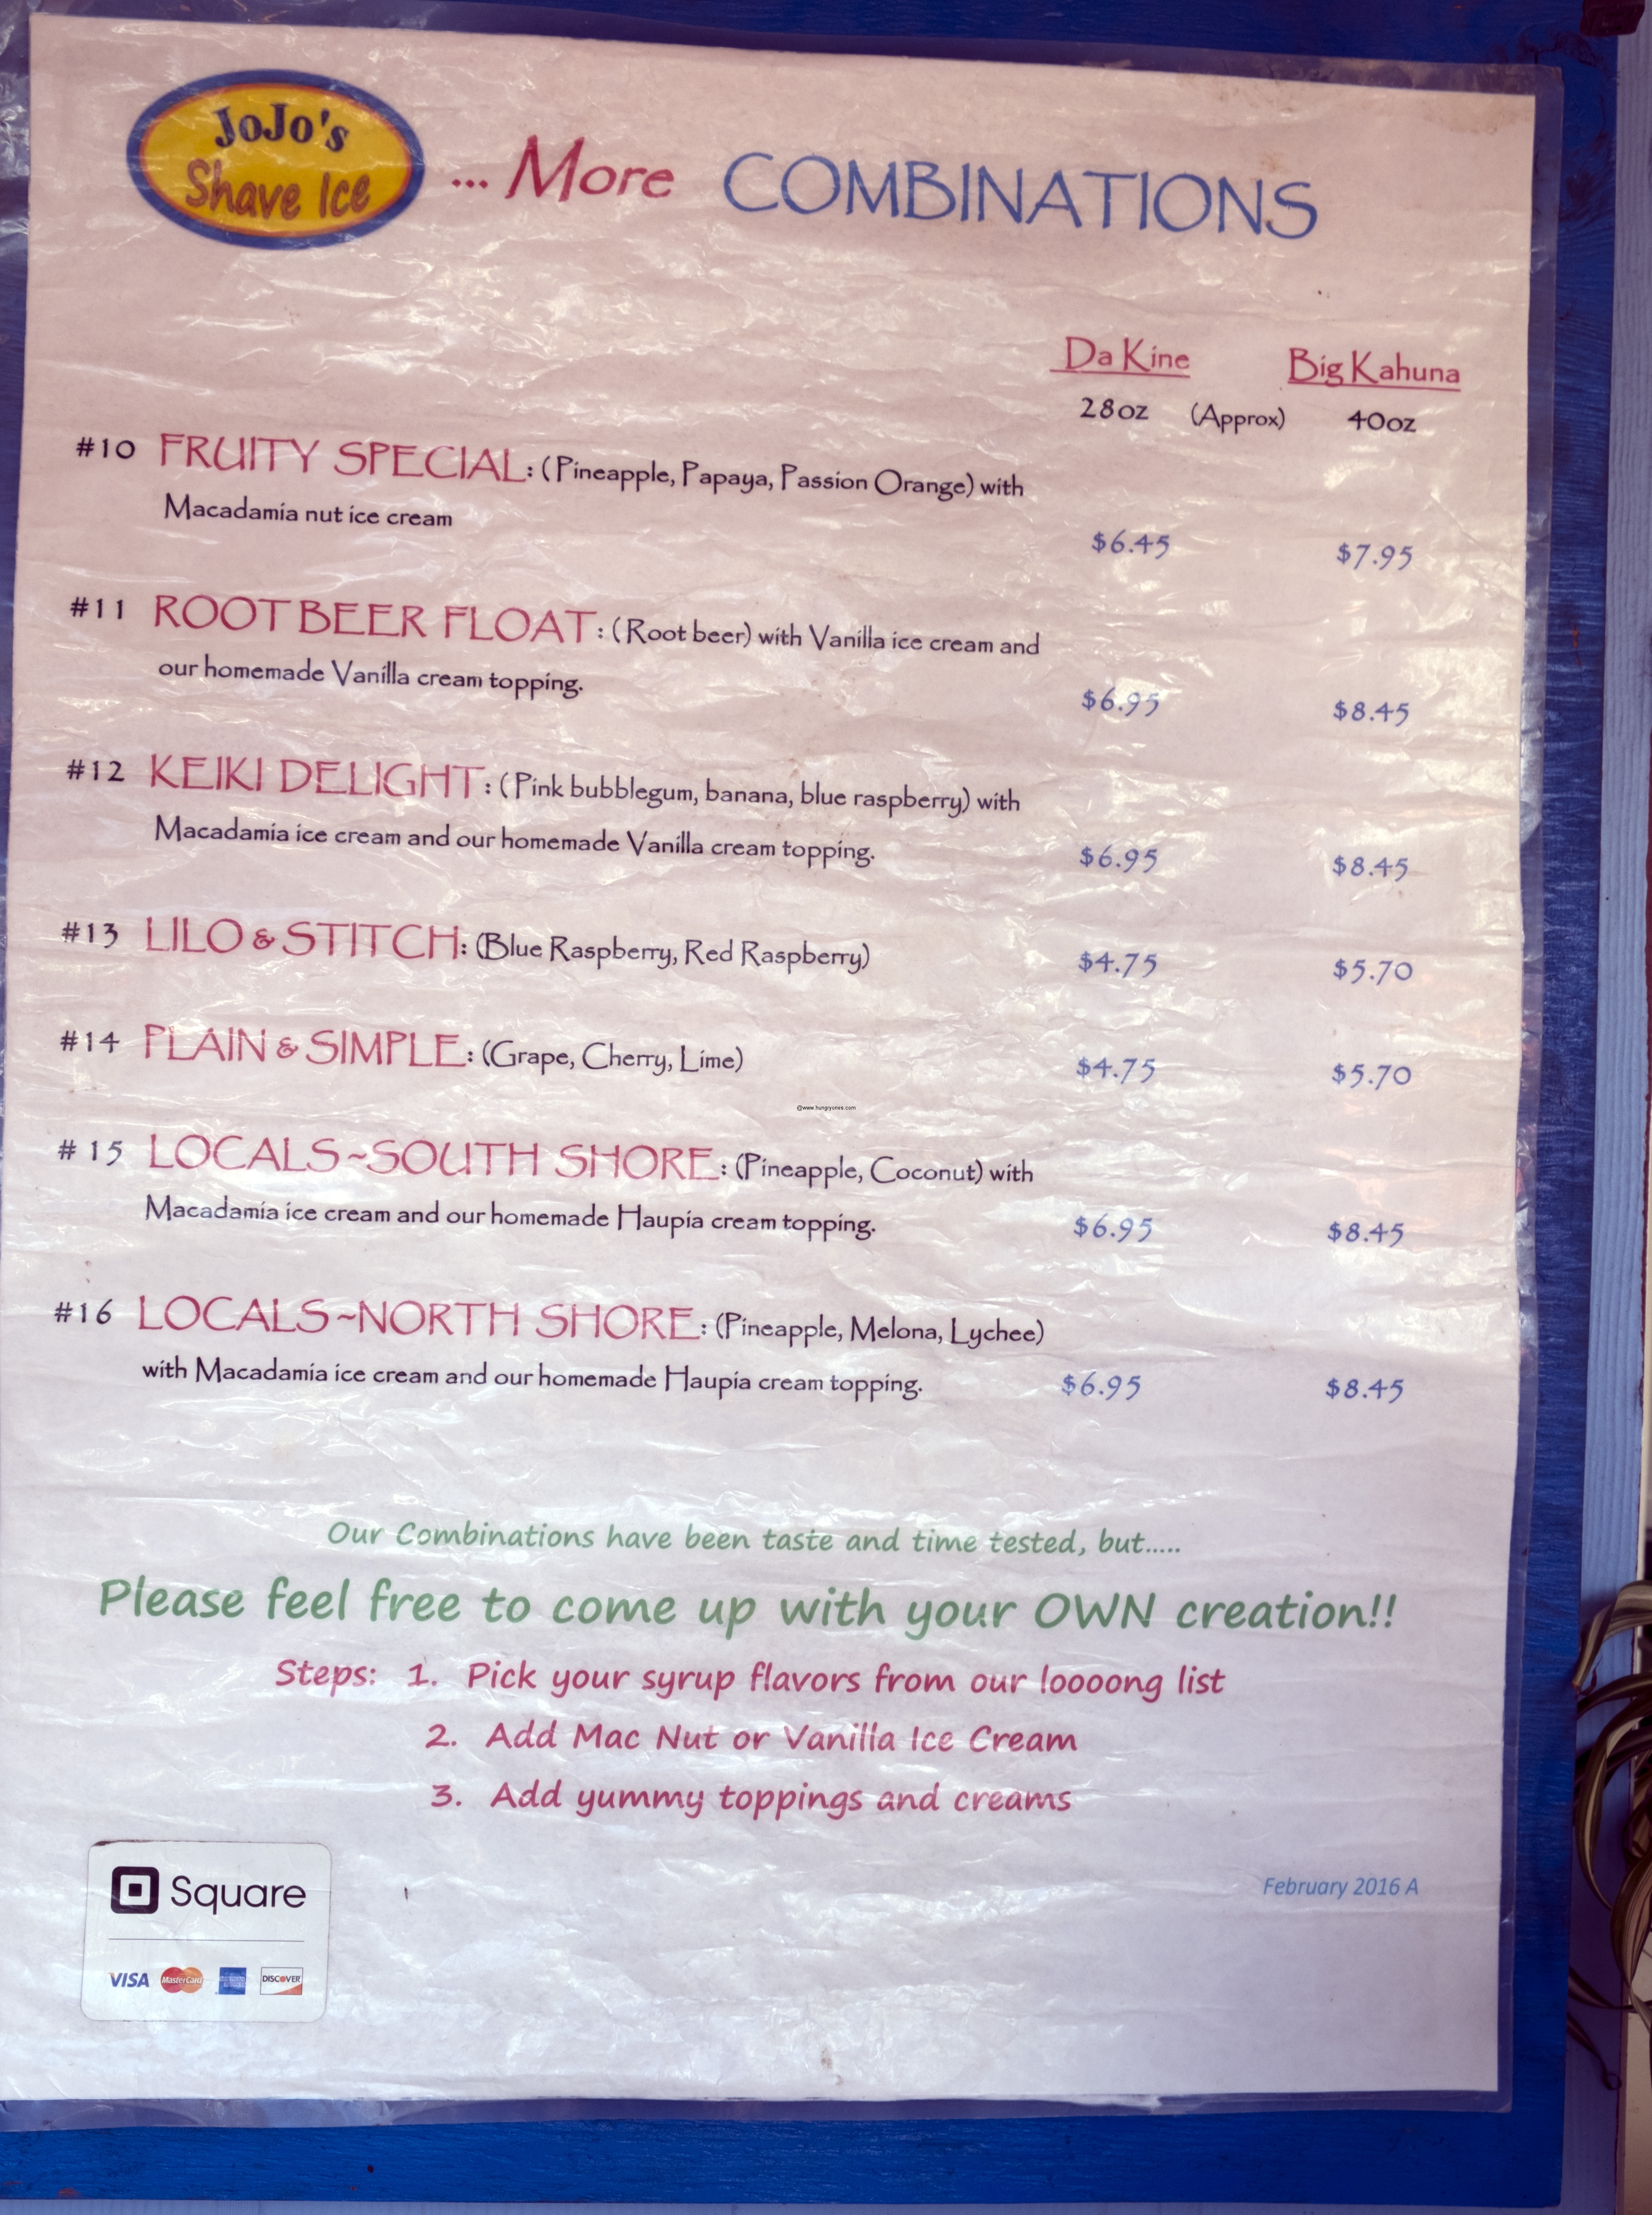 JoJo's
Shave Ice
... More COMBINATIONS
Da Kine Big Kahuna
28oz (Approx) 40oz
#10 FRUITY SPECIAL: (Pineapple, Papaya, Passion Orange) with
Macadamia nut ice cream
$6.45 $7.95
#11 ROOT BEER FLOAT: (Root beer) with Vanilla ice cream and
our homemade Vanilla cream topping.
$6.95 $8.45
#12 KEIKI DELIGHT: (Pink bubblegum, banana, blue raspberry) with
Macadamia ice cream and our homemade Vanilla cream topping.
$6.95 $8.45
#13 LILO & STITCH: (Blue Raspberry, Red Raspberry) $4.75 $5.70
#14 PLAIN & SIMPLE: (Grape, Cherry, Lime) $4.75 $5.70
@www.hungryones.com
# 15 LOCALS~SOUTH SHORE: (Pineapple, Coconut) with
Macadamia ice cream and our homemade Haupia cream topping. $6.95 $8.45
#16 LOCALS~NORTH SHORE: (Pineapple, Melona, Lychee)
with Macadamia ice cream and our homemade Haupia cream topping. $6.95 $8.45
Our Combinations have been taste and time tested, but.....
Please feel free to come up with your OWN creation!!
Steps: 1. Pick your syrup flavors from our loooong list
2. Add Mac Nut or Vanilla Ice Cream
3. Add yummy toppings and creams
Square
February 2016 A
VISA MasterCard DISCOVER